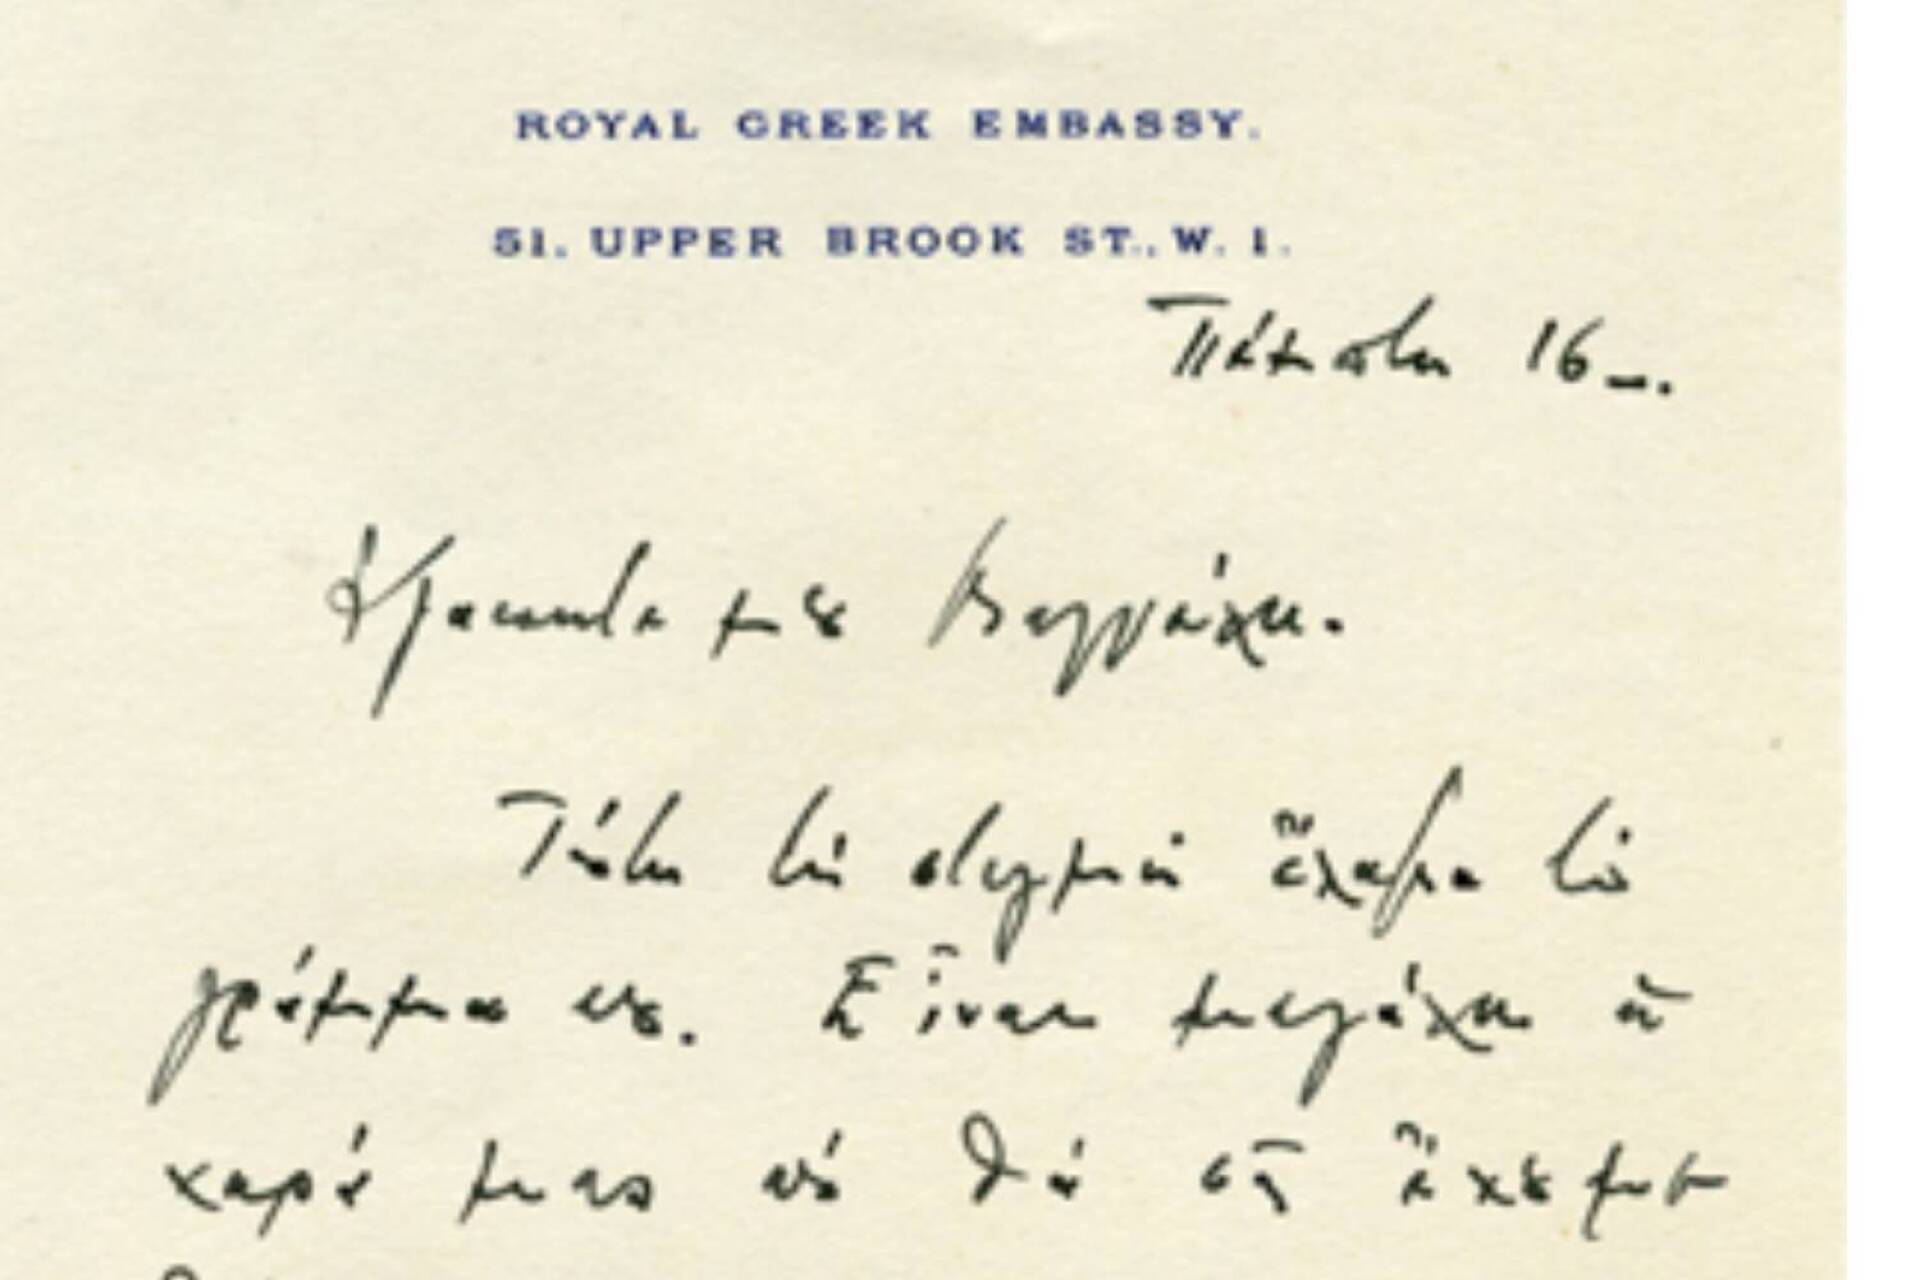 ROYAL GREEK EMBASSY.
51, UPPER BROOK ST., W. 1.
Πέμπτη 16 –.
Ἀγαπητέ μου Βαγγέλη.
Τούτη τὴ στιγμὴ ἔλαβα τὸ
γράμμα σου. Εἶναι μεγάλη ἡ
χαρά μας ποὺ θὰ σᾶς ἔχουμε